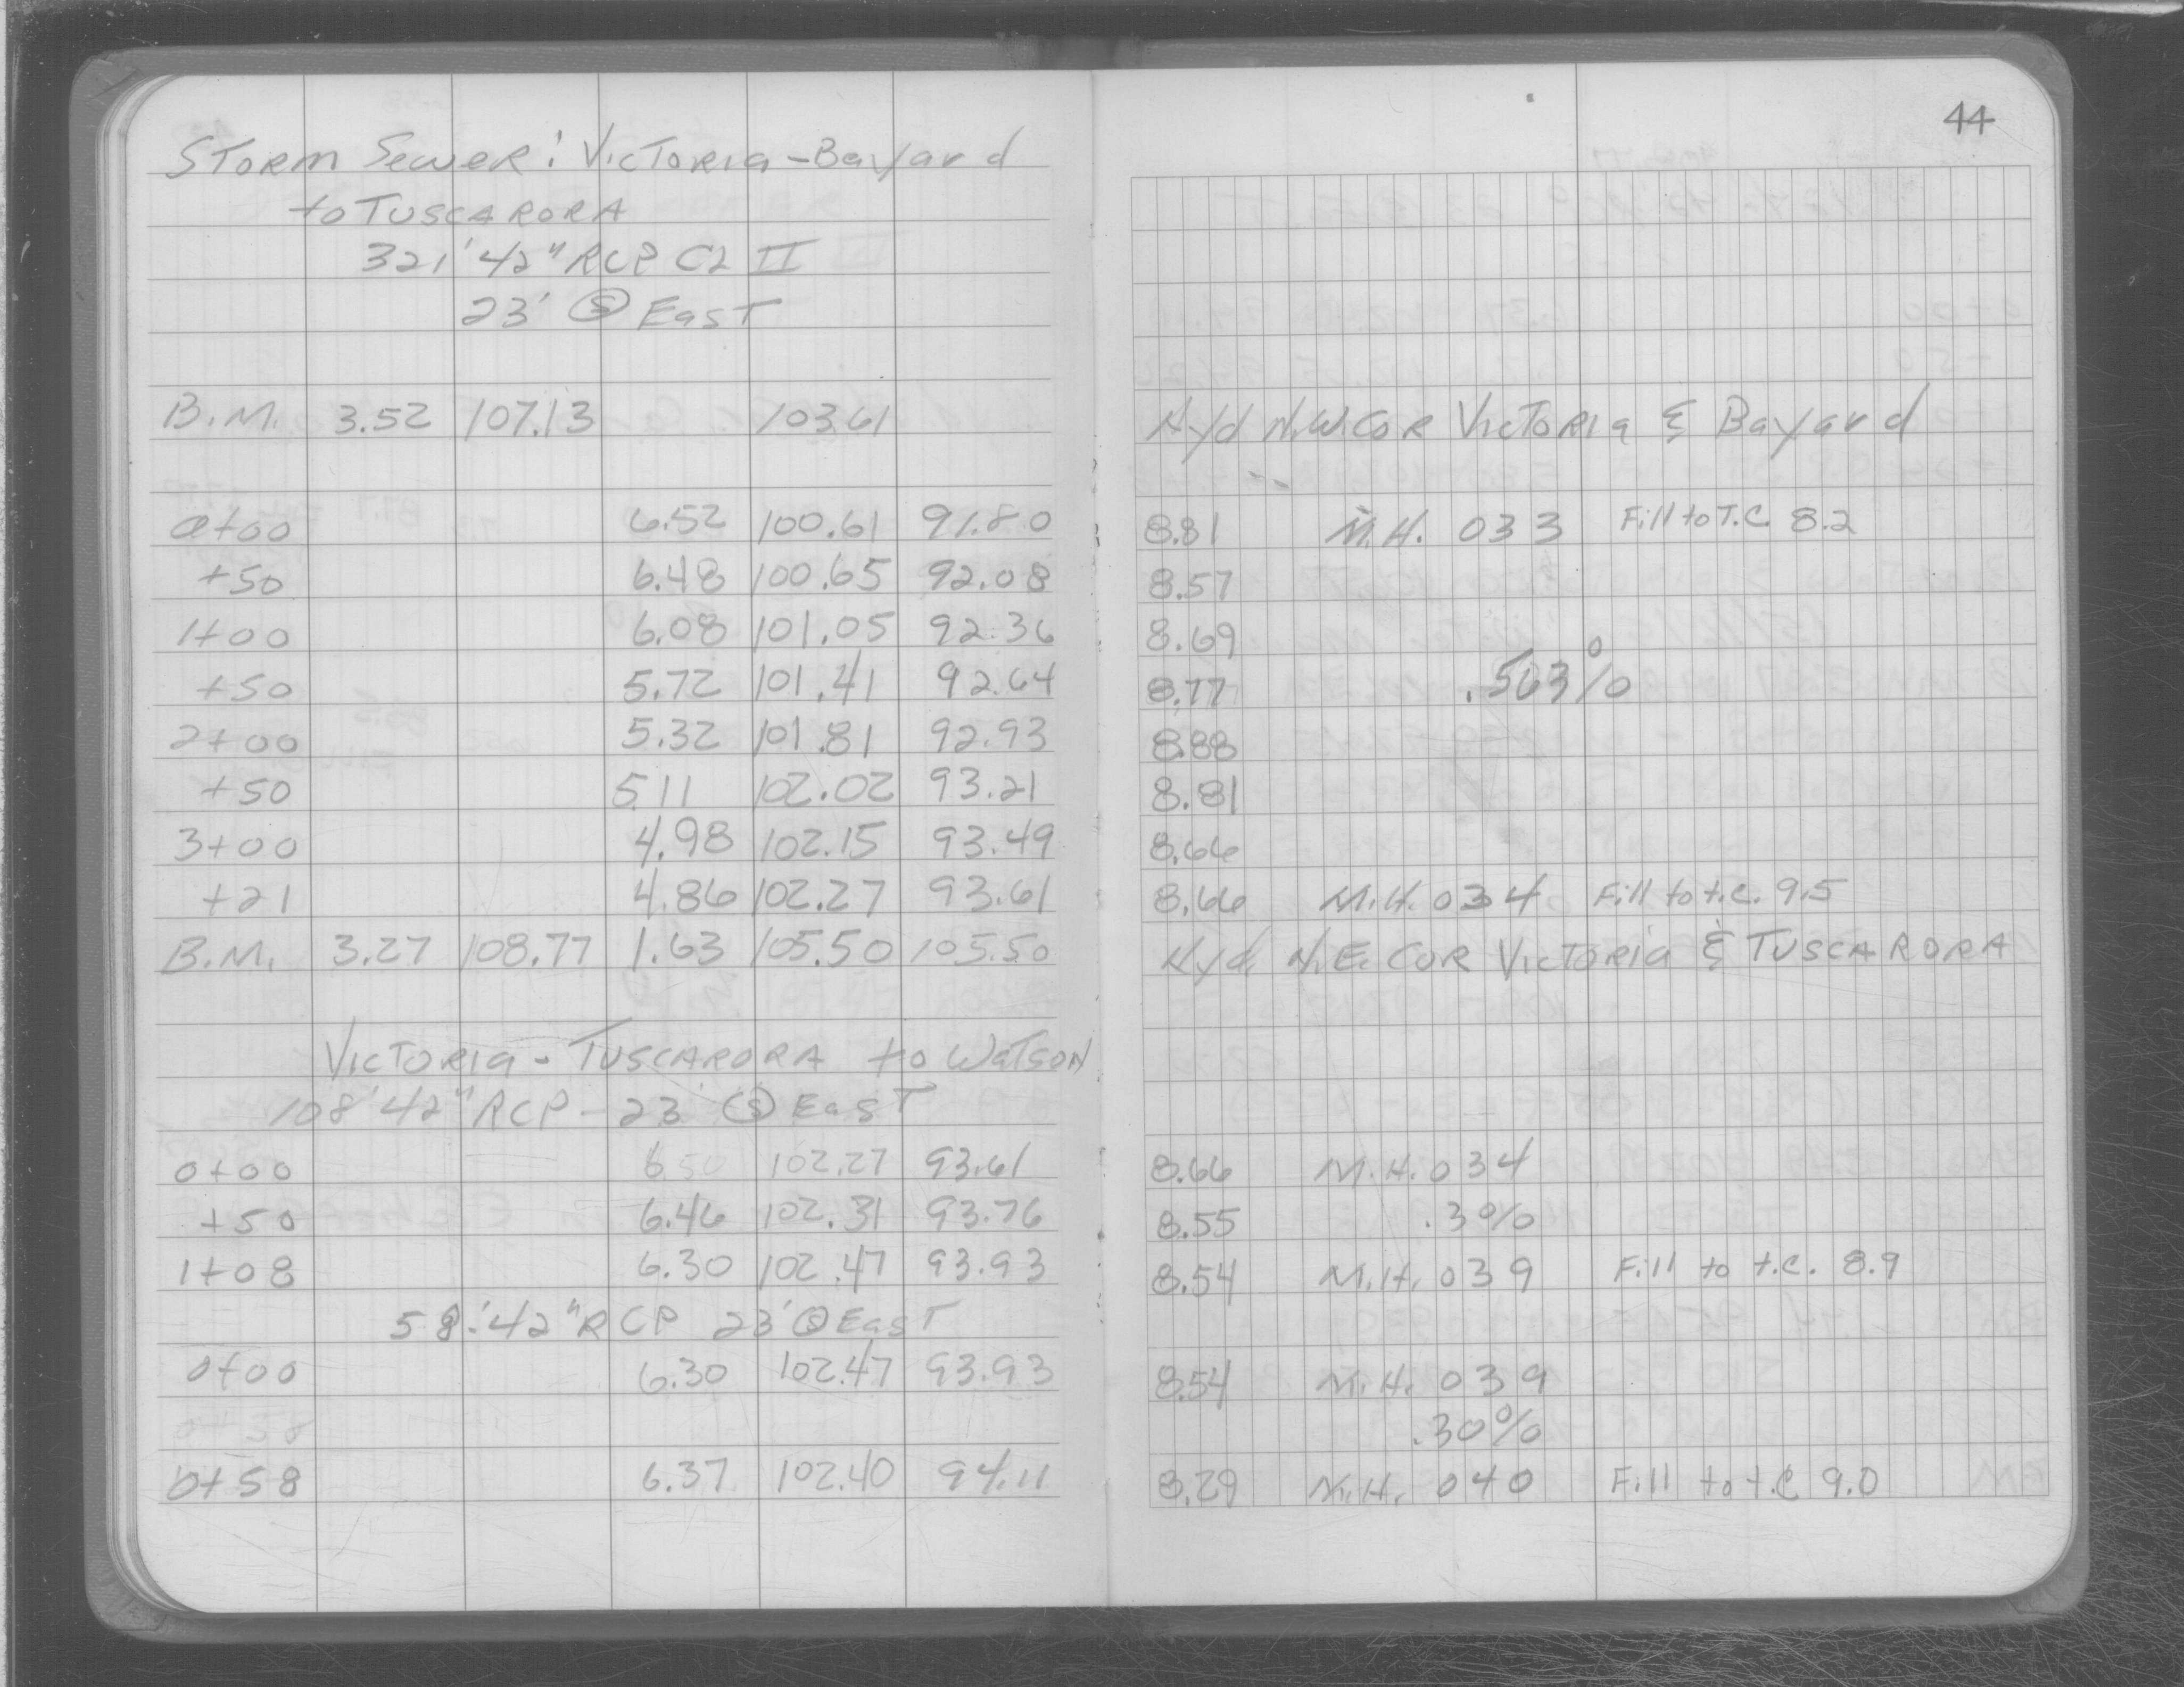 44
Storm Sewer: Victoria-Bayard
to Tuscarora
321' 42" RCP Cl II
23' Ⓢ East
B.M. 3.52 107.13 103.61 Hyd N.W. Cor Victoria & Bayard
0+00 6.52 100.61 91.80 8.81 M.H. 033 Fill to T.C. 8.2
+50 6.48 100.65 92.08 8.57
1+00 6.08 101.05 92.36 8.69
+50 5.72 101.41 92.64 8.77 .563%
2+00 5.32 101.81 92.93 8.88
+50 5.11 102.02 93.21 8.81
3+00 4.98 102.15 93.49 8.66
+21 4.86 102.27 93.61 8.66 M.H. 034 Fill to t.c. 9.5
B.M. 3.27 108.77 1.63 105.50 105.50 Hyd. N.E. Cor Victoria & Tuscarora
Victoria - Tuscarora to Watson
108' 42" RCP - 23' Ⓢ East
0+00 6.50 102.27 93.61 8.66 M.H. 034
+50 6.46 102.31 93.76 8.55 .3%
1+08 6.30 102.47 93.93 8.54 M.H. 039 Fill to t.c. 8.9
58' 42" RCP 23' Ⓢ East
0+00 6.30 102.47 93.93 8.54 M.H. 039
0+58 .30%
0+58 6.37 102.40 94.11 8.29 M.H. 040 Fill to t.c 9.0